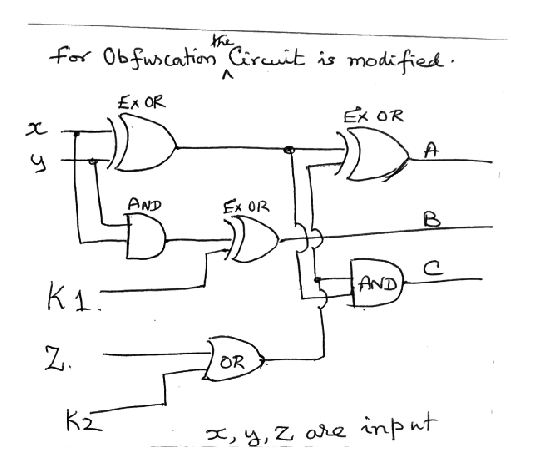 For Obfuscation the Circuit is modified.
Ex OR
Ex OR
x
A
y
AND
Ex OR
B
C
AND
K1.
Z.
OR
K2
x, y, Z are input